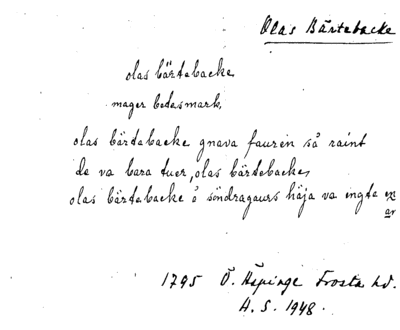 Olas Bärtebacke
olas bärtebacke
mager betesmark
olas bärtebacke gnava fauren så raint
de va bara tuer, olas bärtebacke,
olas bärtebacke å söndragaurs häja va ingte en
ar
1795 Ö. Äspinge Frosta hd.
A.S. 1948.